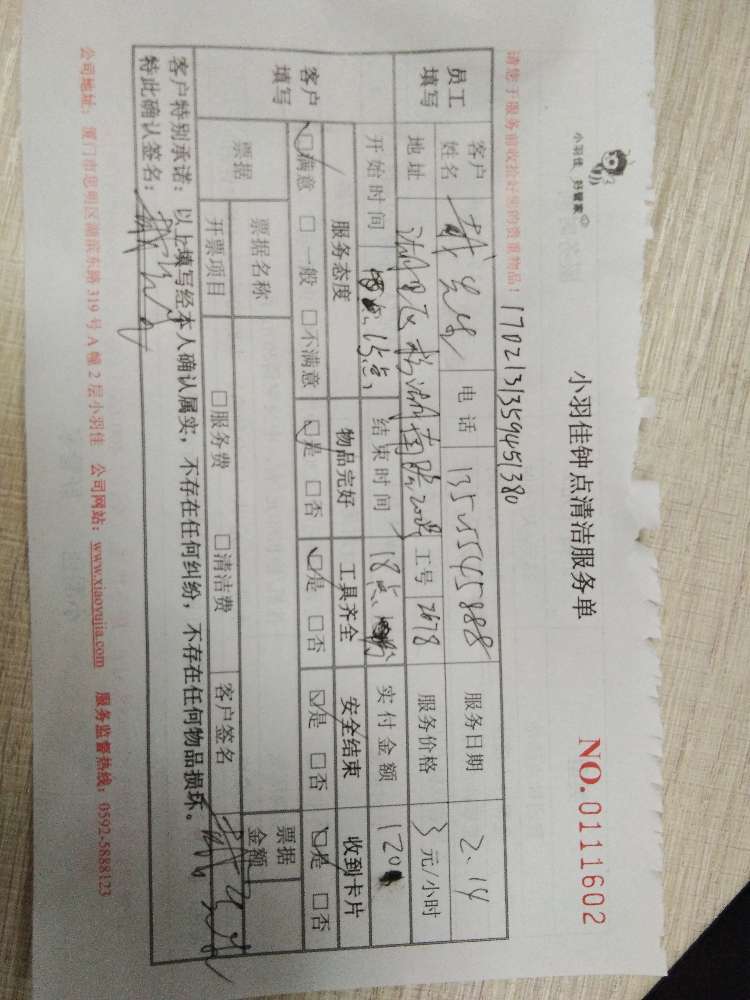 小羽佳 好管家
小羽佳钟点清洁服务单 NO.0111602
请您于服务前收拾好您的贵重物品！ 1702131359451380
员工填写 客户姓名 电话 13515545888 服务日期 2.14
地址 工号 2678 服务价格 3 元/小时
开始时间 15点 结束时间 18点 实付金额 120
客户填写 服务态度 物品完好 工具齐全 安全结束 收到卡片
☑满意 □一般 □不满意 ☑是 □否 ☑是 □否 ☑是 □否 ☑是 □否
票据 票据名称 票据金额
开票项目 □服务费 □清洁费 客户签名
客户特别承诺：以上填写经本人确认属实，不存在任何纠纷，不存在任何物品损坏。
特此确认签名：
公司地址：厦门市思明区湖滨东路319号A幢2层小羽佳 公司网站：www.xiaoyujia.com 服务监督热线：0592-5888123